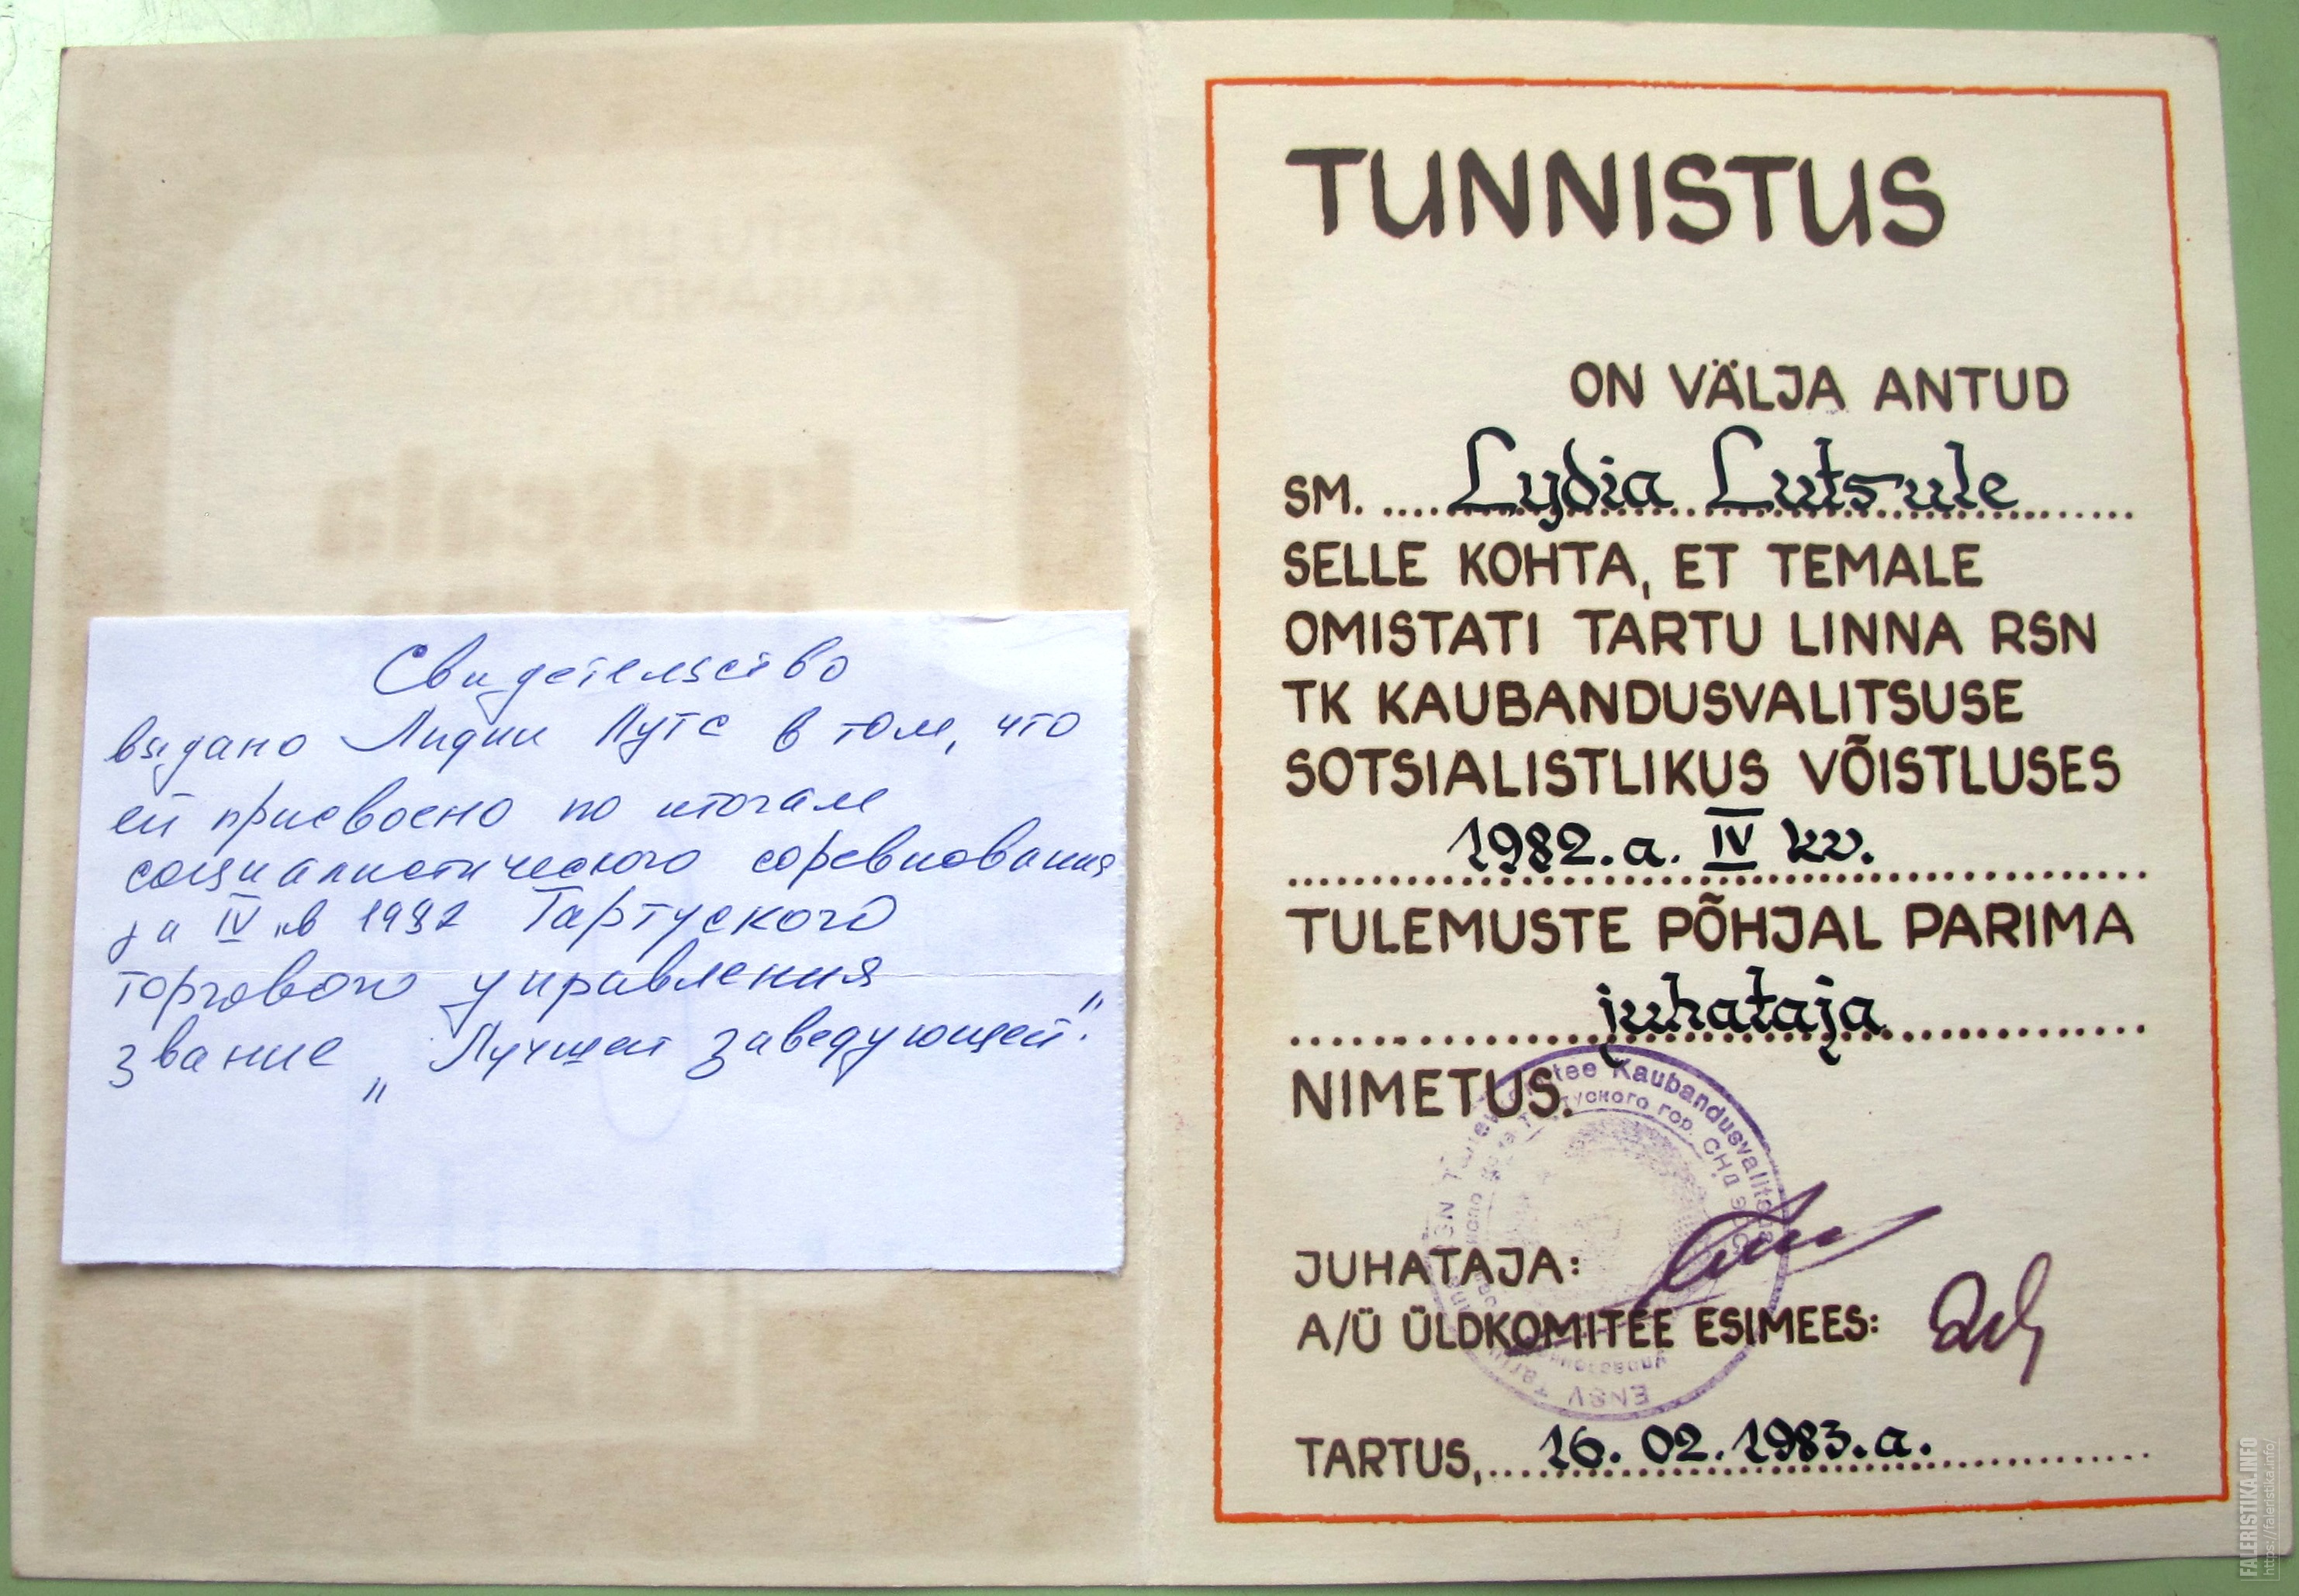 Свидетельство
выдано Лидии Лутс в том, что
ей присвоено по итогам
социалистического соревнования
за IV кв 1982 Тартуского
торгового управления
звание „Лучшей заведующей".
TUNNISTUS
ON VÄLJA ANTUD
SM. Lydia Lutsule
SELLE KOHTA, ET TEMALE
OMISTATI TARTU LINNA RSN
TK KAUBANDUSVALITSUSE
SOTSIALISTLIKUS VÕISTLUSES
1982.a. IV kv.
TULEMUSTE PÕHJAL PARIMA
juhataja
NIMETUS.
Kaubandusvalitsus
гор. СНД ЭССР
ENSV
JUHATAJA:
A/Ü ÜLDKOMITEE ESIMEES:
TARTUS, 16. 02. 1983.a.
FALERISTIKA.INFO
https://faleristika.info/